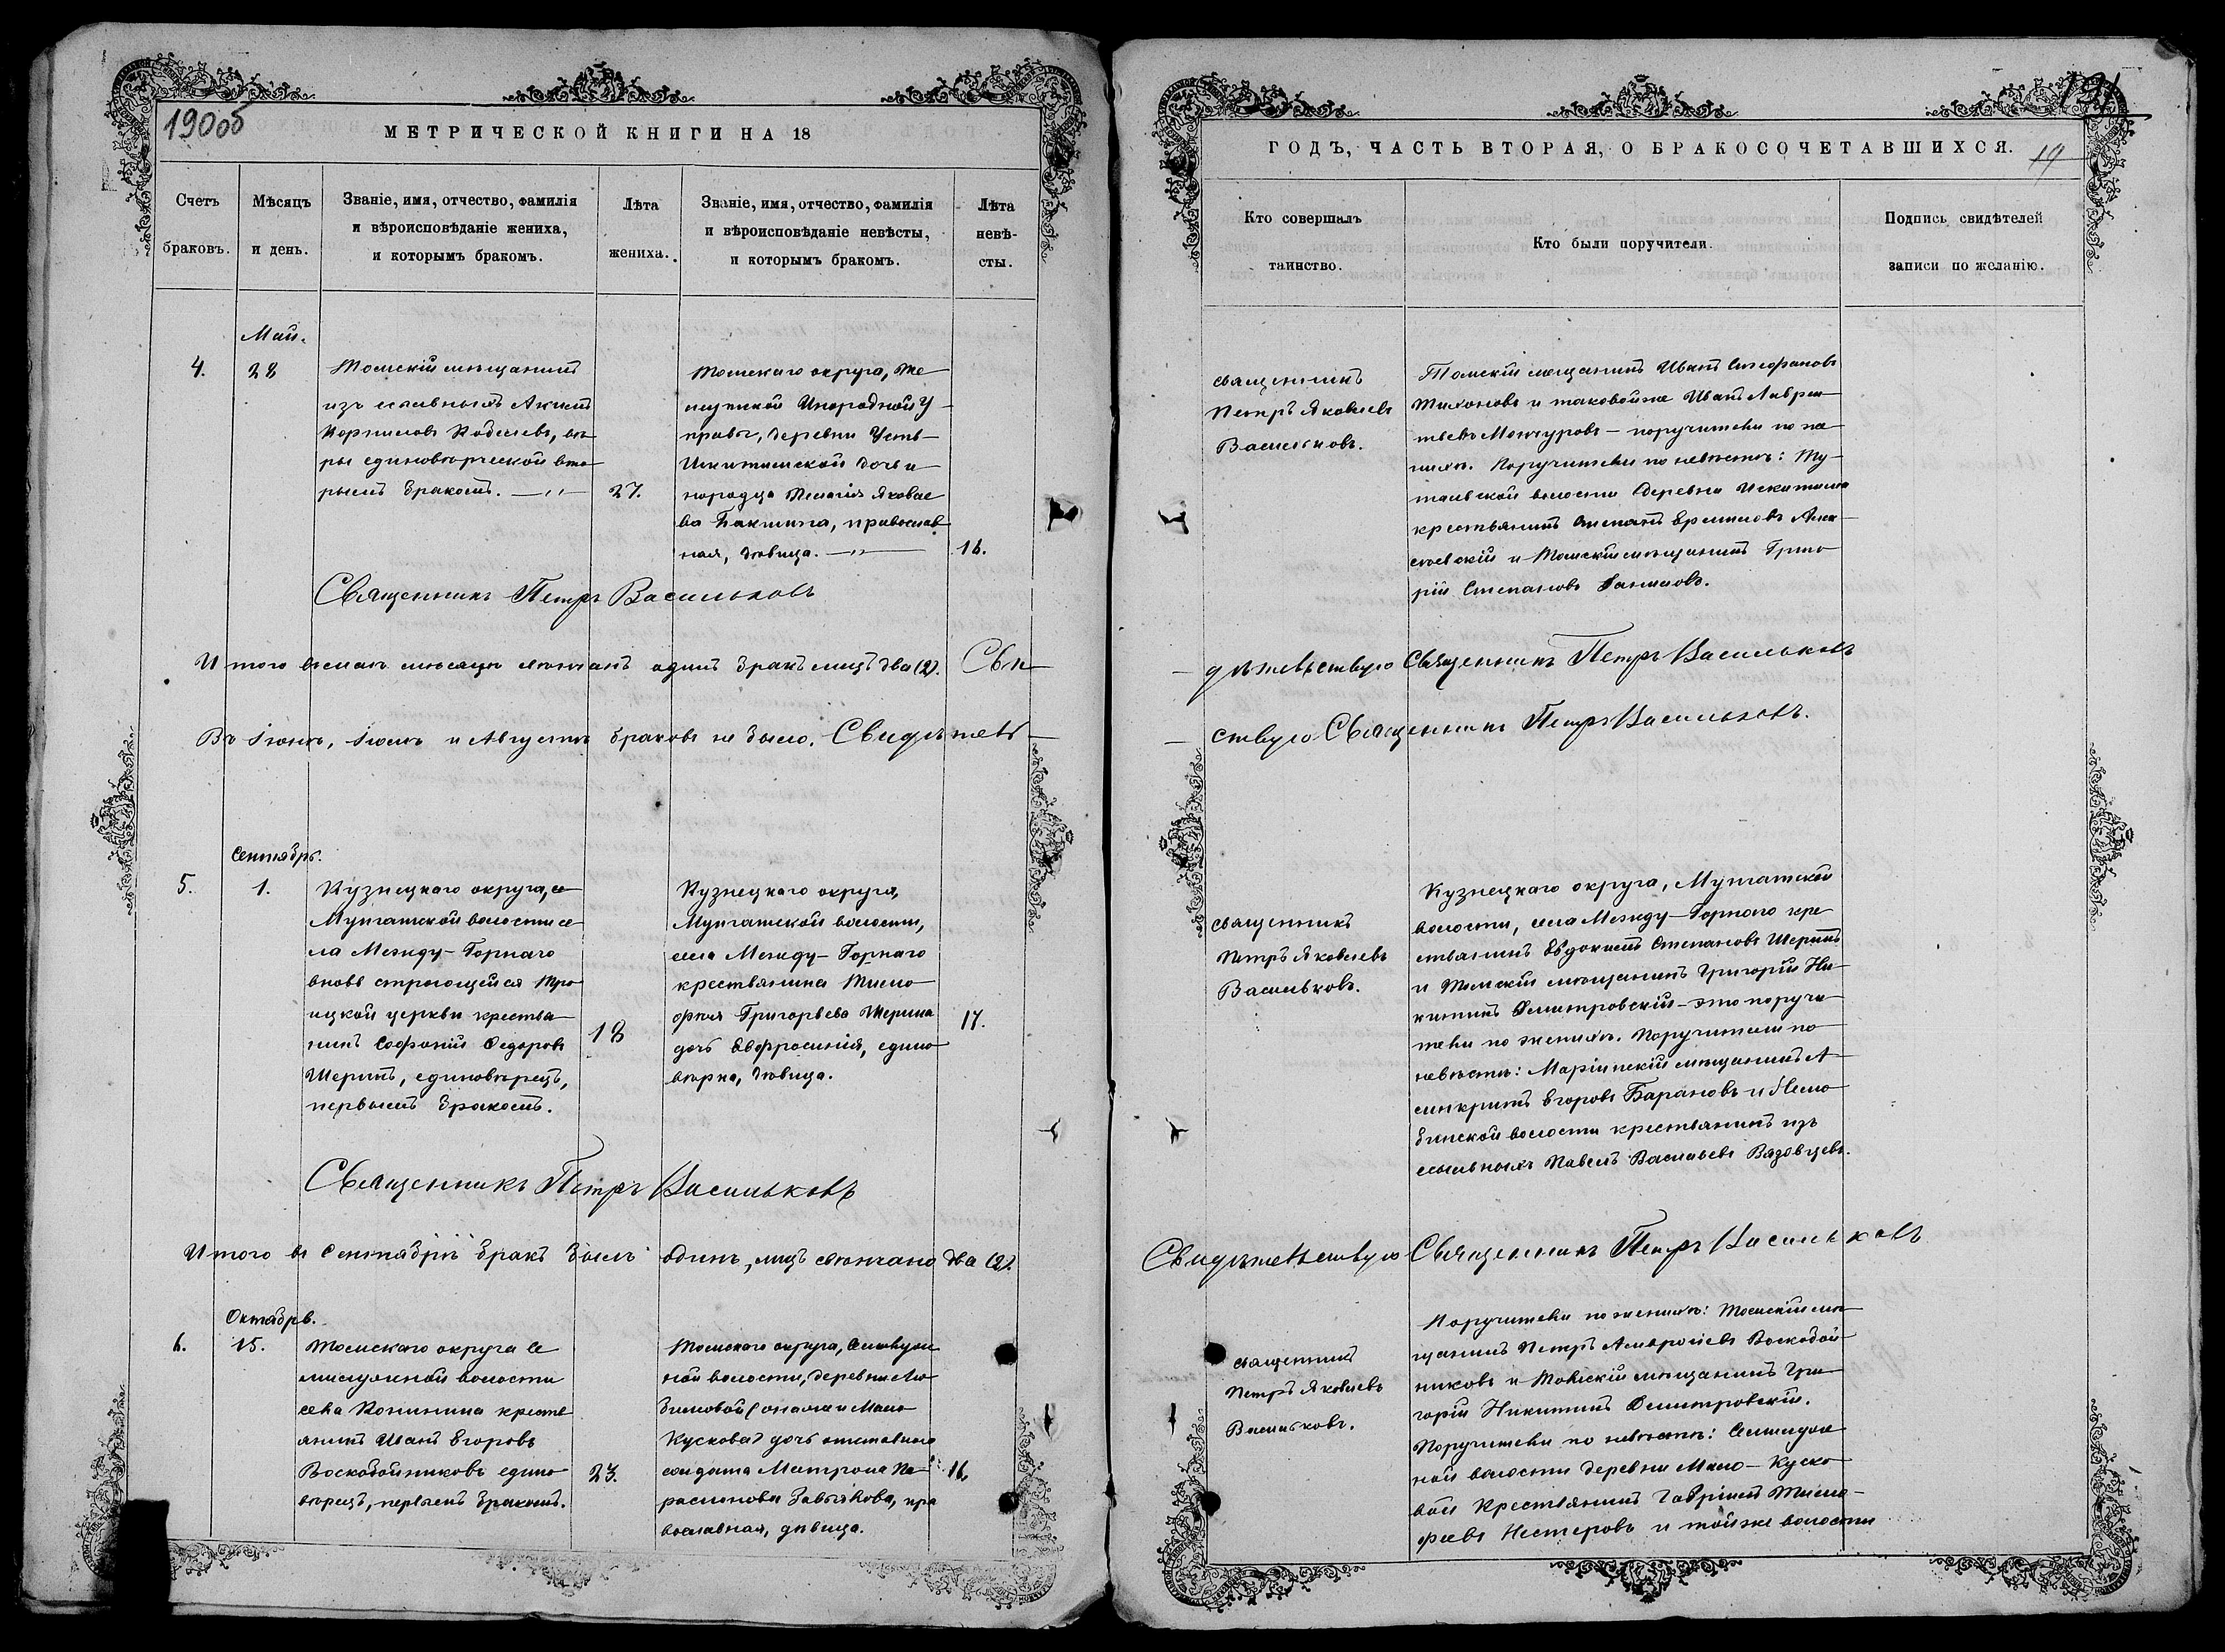 190об
МЕТРИЧЕСКОЙ КНИГИ НА 18
Счетъ
браковъ.
Мѣсяцъ
и день.
Званіе, имя, отчество, фамилія
и вѣроисповѣданіе жениха,
и которымъ бракомъ.
Лѣта
жениха.
Званіе, имя, отчество, фамилія
и вѣроисповѣданіе невѣсты,
и которымъ бракомъ.
Лѣта
невѣ-
сты.
Май.
4.
28
Томскій мѣщанинъ
изъ ссыльныхъ Акимъ
Корниловъ Кобелевъ, вѣ
ры единовѣрческой вто
рымъ бракомъ.
27.
Томскаго округа,
Инородной У-
правы, деревни Усть-
Искитимской дочь и
нородца Пелагія Яковле
ва Бактина, православ
ная, дѣвица.
16.
Священникъ Петръ Васильковъ
Итого въ маѣ мѣсяцѣ вѣнчанъ одинъ бракъ лицъ два (2). Сви
Въ Іюнѣ, Іюлѣ и Августѣ браковъ не было. Свидѣтель-
Сентябрь.
5.
1.
Кузнецкаго округа, се
Мунгатской волости се
ла Между-Горнаго
вновь строющейся Тро
ицкой церкви крестья
нинъ Софоній Ѳедоровъ
Шеринъ, единовѣрецъ,
первымъ бракомъ.
18
Кузнецкаго округа,
Мунгатской волости,
села Между-Горнаго
крестьянина Тимо
фея Григорьева Шерина
дочь Евфросинія, едино
вѣрка, дѣвица.
17.
Священникъ Петръ Васильковъ
Итого въ Сентябрѣ бракъ былъ одинъ, лицъ свѣнчано два (2).
Октябрь.
6.
15.
Томскаго округа Се
милужной волости
села Конинина кресть
янинъ Иванъ Егоровъ
Воскобойниковъ едино
вѣрецъ, первымъ бракомъ.
23.
Томскаго округа, Семилуж
ной волости, деревни
(она же и Мало
Кускова) дочь отставнаго
солдата Матрона
православная, дѣвица.
16.
191
ГОДЪ, ЧАСТЬ ВТОРАЯ, О БРАКОСОЧЕТАВШИХСЯ.
19
Кто совершалъ
таинство.
Кто были поручители.
Подпись свидѣтелей
записи по желанію.
священникъ
Петръ Яковлевъ
Васильковъ.
Томскій мѣщанинъ Иванъ Стефановъ
Тихоновъ и таковой же Иванъ Лаврен
тьевъ Мончуровъ - поручители по же
нихѣ. Поручители по невѣстѣ: Ту-
тальской волости деревни Искитима
крестьянинъ Степанъ Ермиловъ Алек
сѣевскій и Томскій мѣщанинъ Григо
рій Степановъ Даниловъ.
дѣтельствую Священникъ Петръ Васильковъ
ствую Священникъ Петръ Васильковъ.
священникъ
Петръ Яковлевъ
Васильковъ.
Кузнецкаго округа, Мунгатской
волости, села Между-Горнаго кре
стьянинъ Евдокимъ Степановъ Шеринъ
и Томскій мѣщанинъ Григорій Ни-
китинъ Димитровскій - это поручи
тели по женихѣ. Поручители по
невѣстѣ: Маріинскій мѣщанинъ А-
синкритъ Егоровъ Барановъ и Нелю
бинской волости крестьянинъ изъ
ссыльныхъ Павелъ Васильевъ Вязовцевъ.
Свидѣтельствую Священникъ Петръ Васильковъ
священникъ
Петръ Яковлевъ
Васильковъ.
Поручители по женихѣ: Томскій мѣ
щанинъ Петръ Амвросіевъ Воскобой-
никовъ и Томскій мѣщанинъ Гри
горій Никитинъ Димитровскій.
Поручители по невѣстѣ: Семилуж
ной волости деревни Мало-Куско
вой крестьянинъ Гавріилъ Тимо-
феевъ Нестеровъ и той же волости